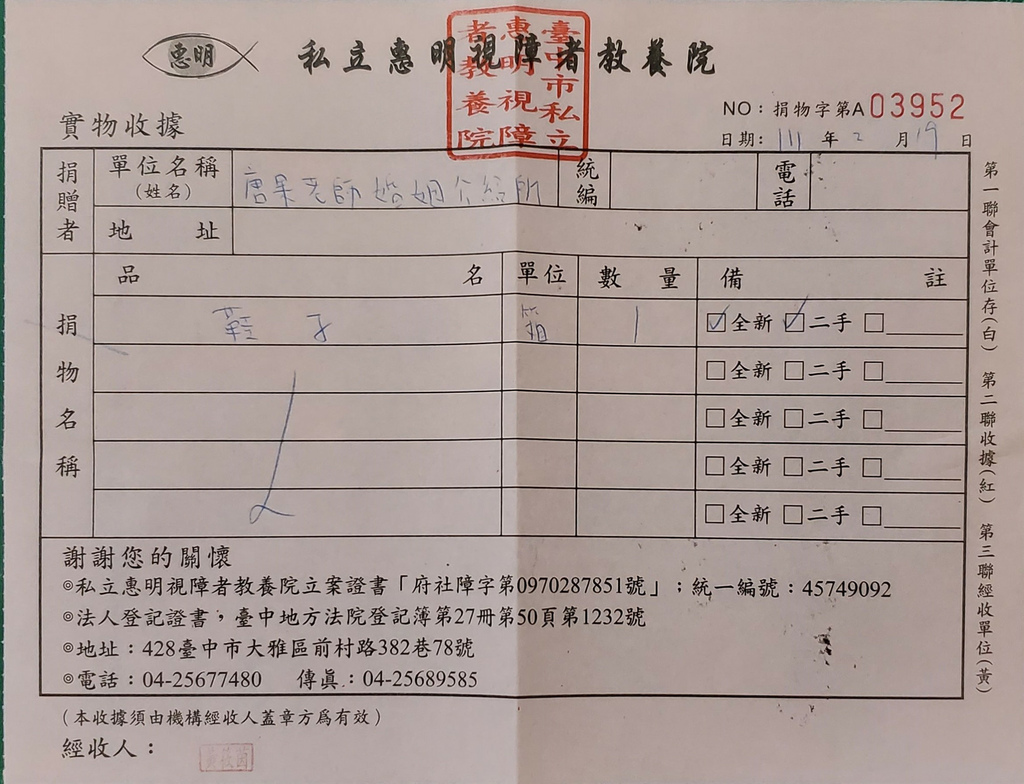 惠明 私立惠明視障者教養院
臺中市私立惠明視障者教養院
NO：捐物字第A03952
實物收據
日期：111年2月19日
捐贈者 單位名稱(姓名) 唐果老師婚姻介紹所 統編 電話
地址
捐物名稱 品名 單位 數量 備註
鞋子 箱 1 ☑全新 ☑二手 □
□全新 □二手 □
□全新 □二手 □
□全新 □二手 □
□全新 □二手 □
謝謝您的關懷
◎私立惠明視障者教養院立案證書「府社障字第0970287851號」；統一編號：45749092
◎法人登記證書，臺中地方法院登記簿第27冊第50頁第1232號
◎地址：428臺中市大雅區前村路382巷78號
◎電話：04-25677480 傳眞：04-25689585
（本收據須由機構經收人蓋章方爲有效）
經收人：
第一聯會計單位存(白) 第二聯收據(紅) 第三聯經收單位(黃)